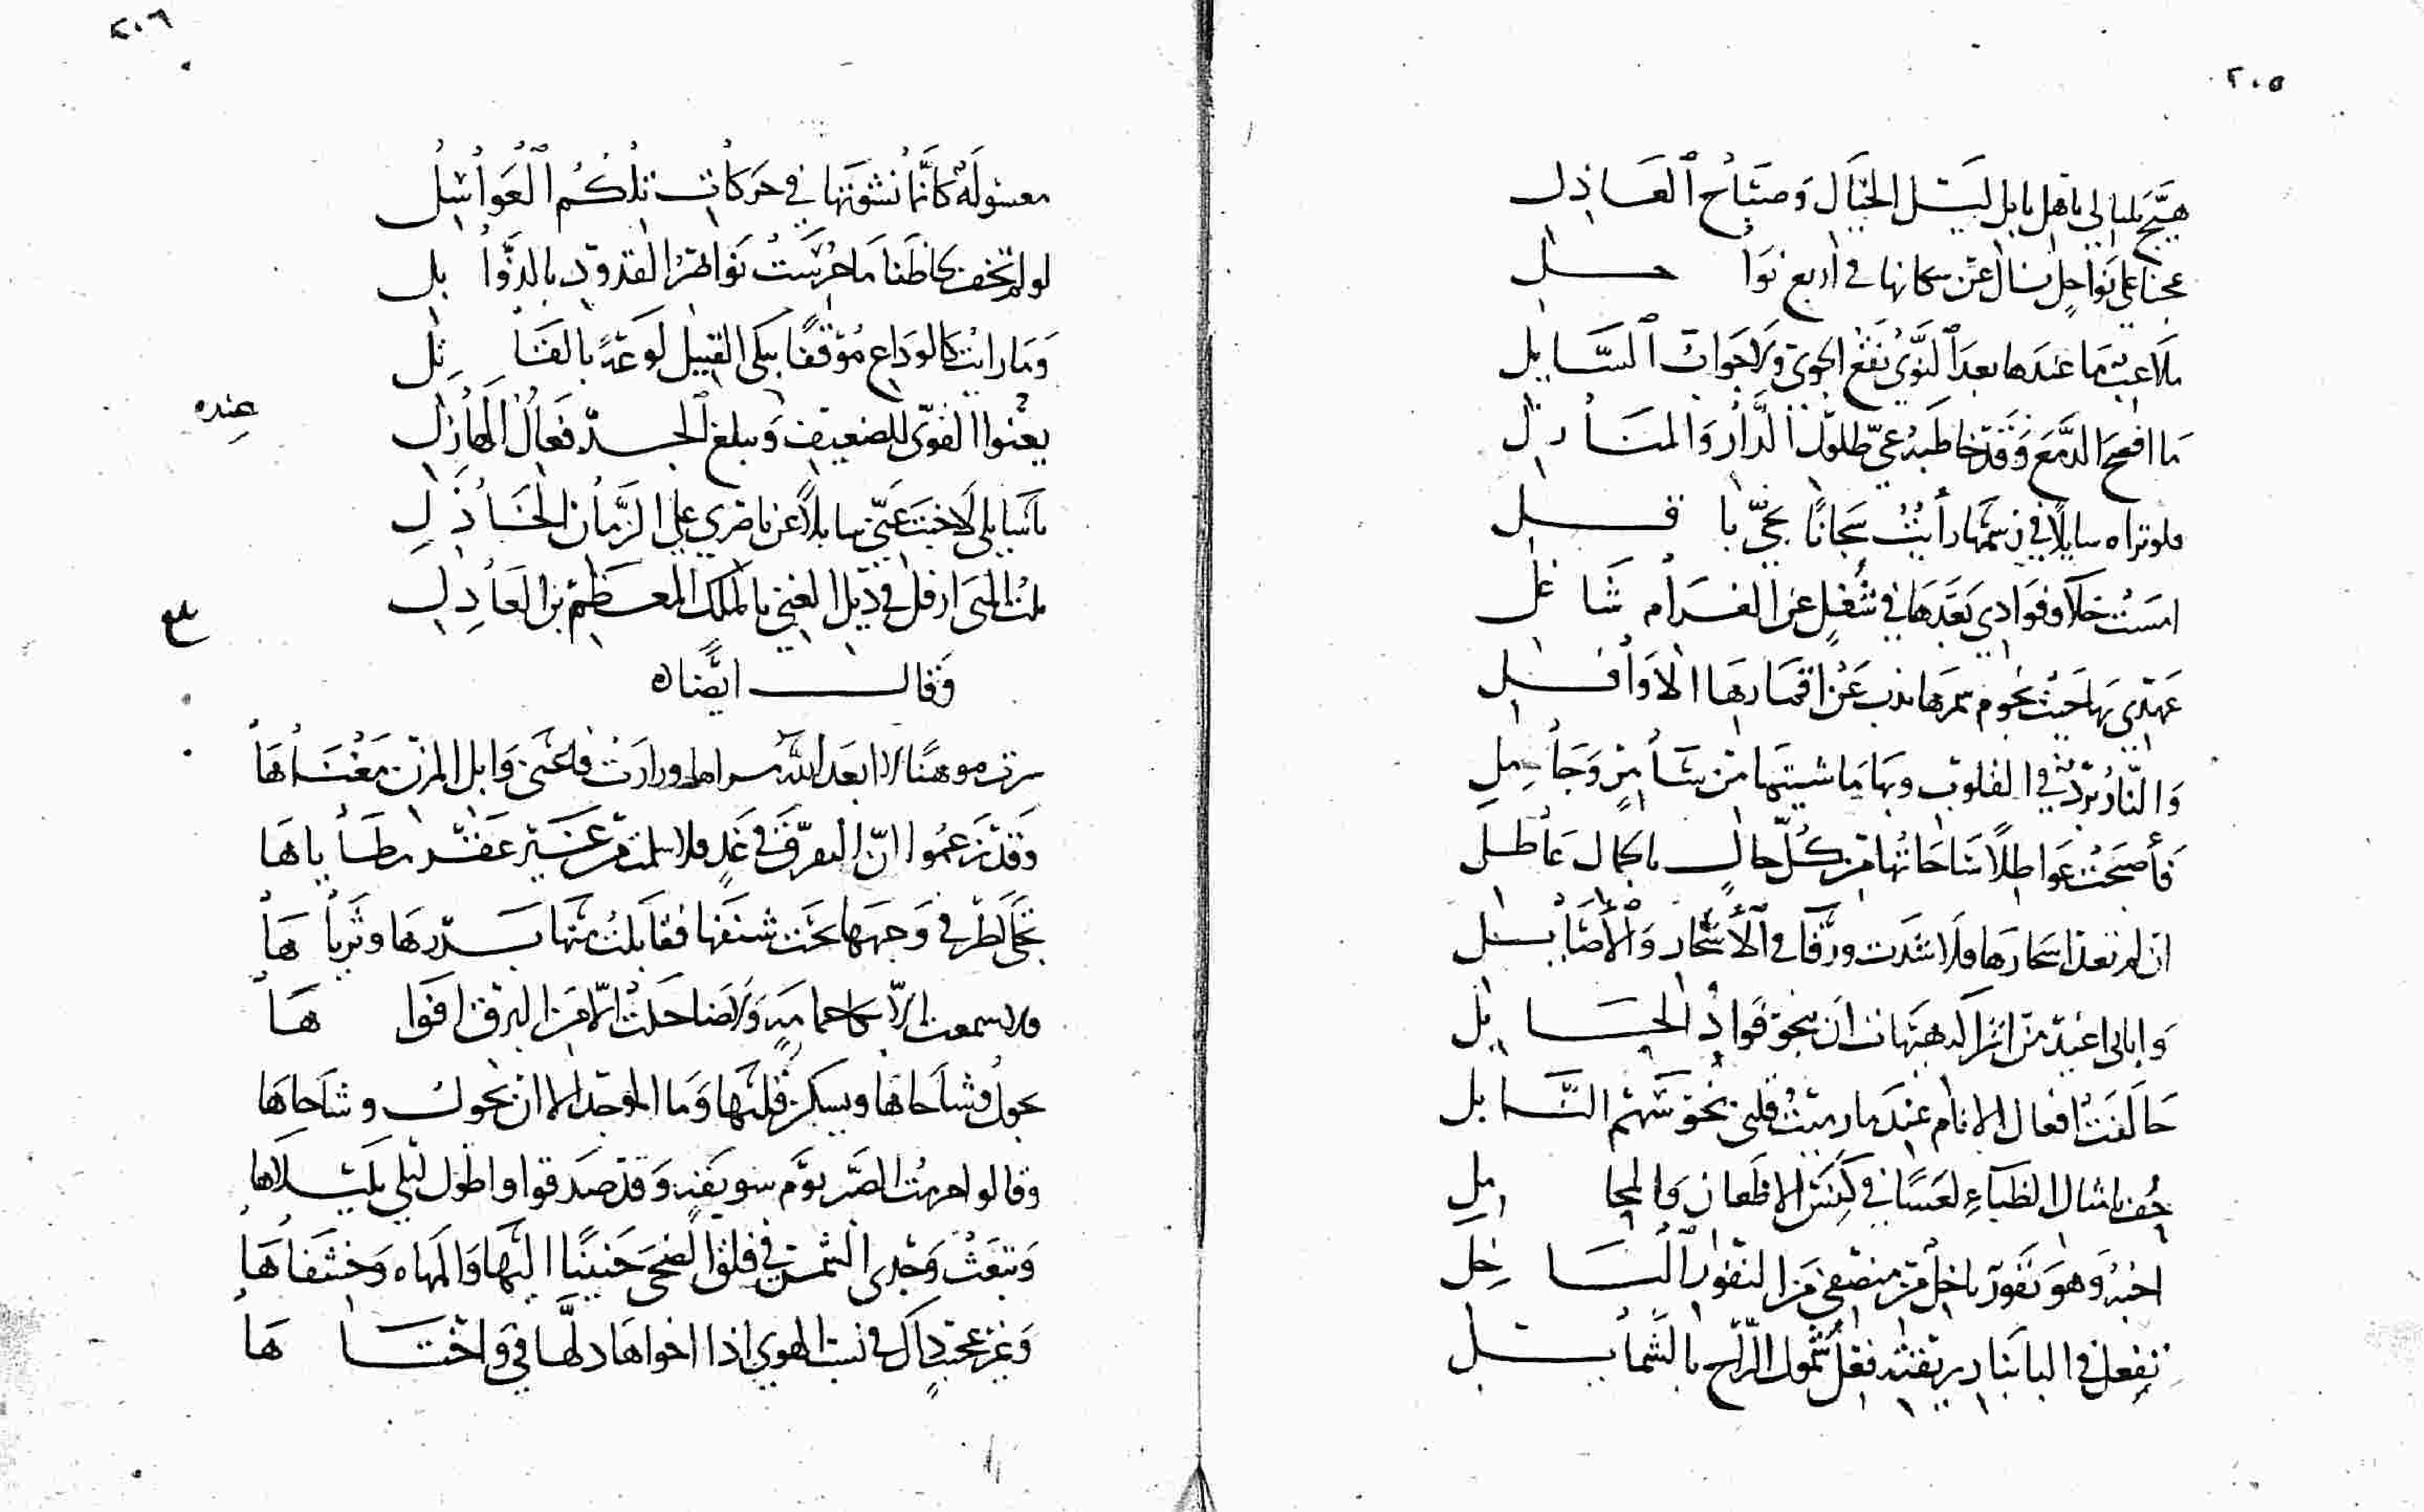 ٢٠٥
هيج بلبالي بأهل بابل ليل الخيال وصباح العاذل
عجنا على نواحل نسأل عن سكانها في أربع نواحل
ملاعب ما عندها بعد النوى نفع الجوى ولا جواب السايل
ما افصح الدمع وقد خاطبه عي طلول الدار والمنازل
فلو تراه سايلًا في رسمها رأيت سحبانًا بحي باقل
امست خلاء وفوادي بعدها في شغل عن الغرام شاغل
عهدي بها حيث نجوم سمرها عن اقمارها الاوافل
والنار برد في القلوب وبها ما شيتها من سامر وجامل
فأصبحت عواطلًا ساحاتها من كل حال با كمال عاطل
ان لم تعد اسحارها فلا شدت ورقا في الأسحار والأصايل
وابابي اغيد من اشراكه هيهات ان ينجو فواد الحابل
خالفت افعال الانام عندما رميت قلبي نحو سهم النابل
امثال الظباء لعسًا في كنس الاظعان والمحامل
اخبه وهو نفور باخل من منصفي من النفور الباخل
تفعل في البابنا ريقته فعل شمول الراح بالشمايل
٢٠٦
معسولة كأنما نشوتها في حركات تلكم العواسل
لو لم تخف لحاظنا ما حرست نواظر القدود بالذوابل
وما رايت كالوداع موقفًا يبكى القتيل لوعة بالقاتل
يعنوا القوى للضعيف ويبلغ الجد فعال الهازل
عنده
يا سايلى لا خبت عني سايلًا عن ناصري على الزمان الخاذل
نلت المنى ارفل في ذيل الغنى بالملك المعظم بن العادل
وقال ايضًا
سرت موهنًا لا ابعد الله مسراها وزارت فاغنى وابل المزن مغناها
وقد زعموا ان التفرق في غد فلا سلمت من عنسير عقر مطاياها
تخالطر في وجهها تحت شنفها فقابلت منها بدرها وثرياها
فلا سمعت الا حمامة ولا ضاحكت الا من البرق افواها
يجول وشاحاها ويسكن قلبها وما الوجد الا ان يجول وشاحاها
وقالوا هرمت الصبر يوم سويقة وقد صدقوا واطول ليلي بليلاها
وتبعث وجدى الشمس في فلق الضحى حنينًا اليها والمهاه وخشفاها
وغير عجيب ذاك في نسب الهوى اذا اخواها دلها في واختاها